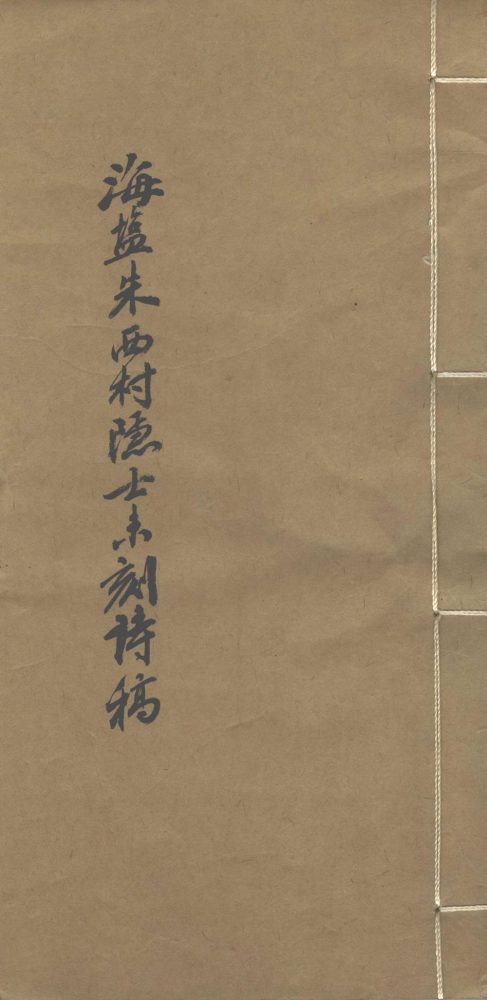 海盐朱西村隱士未刻詩稿